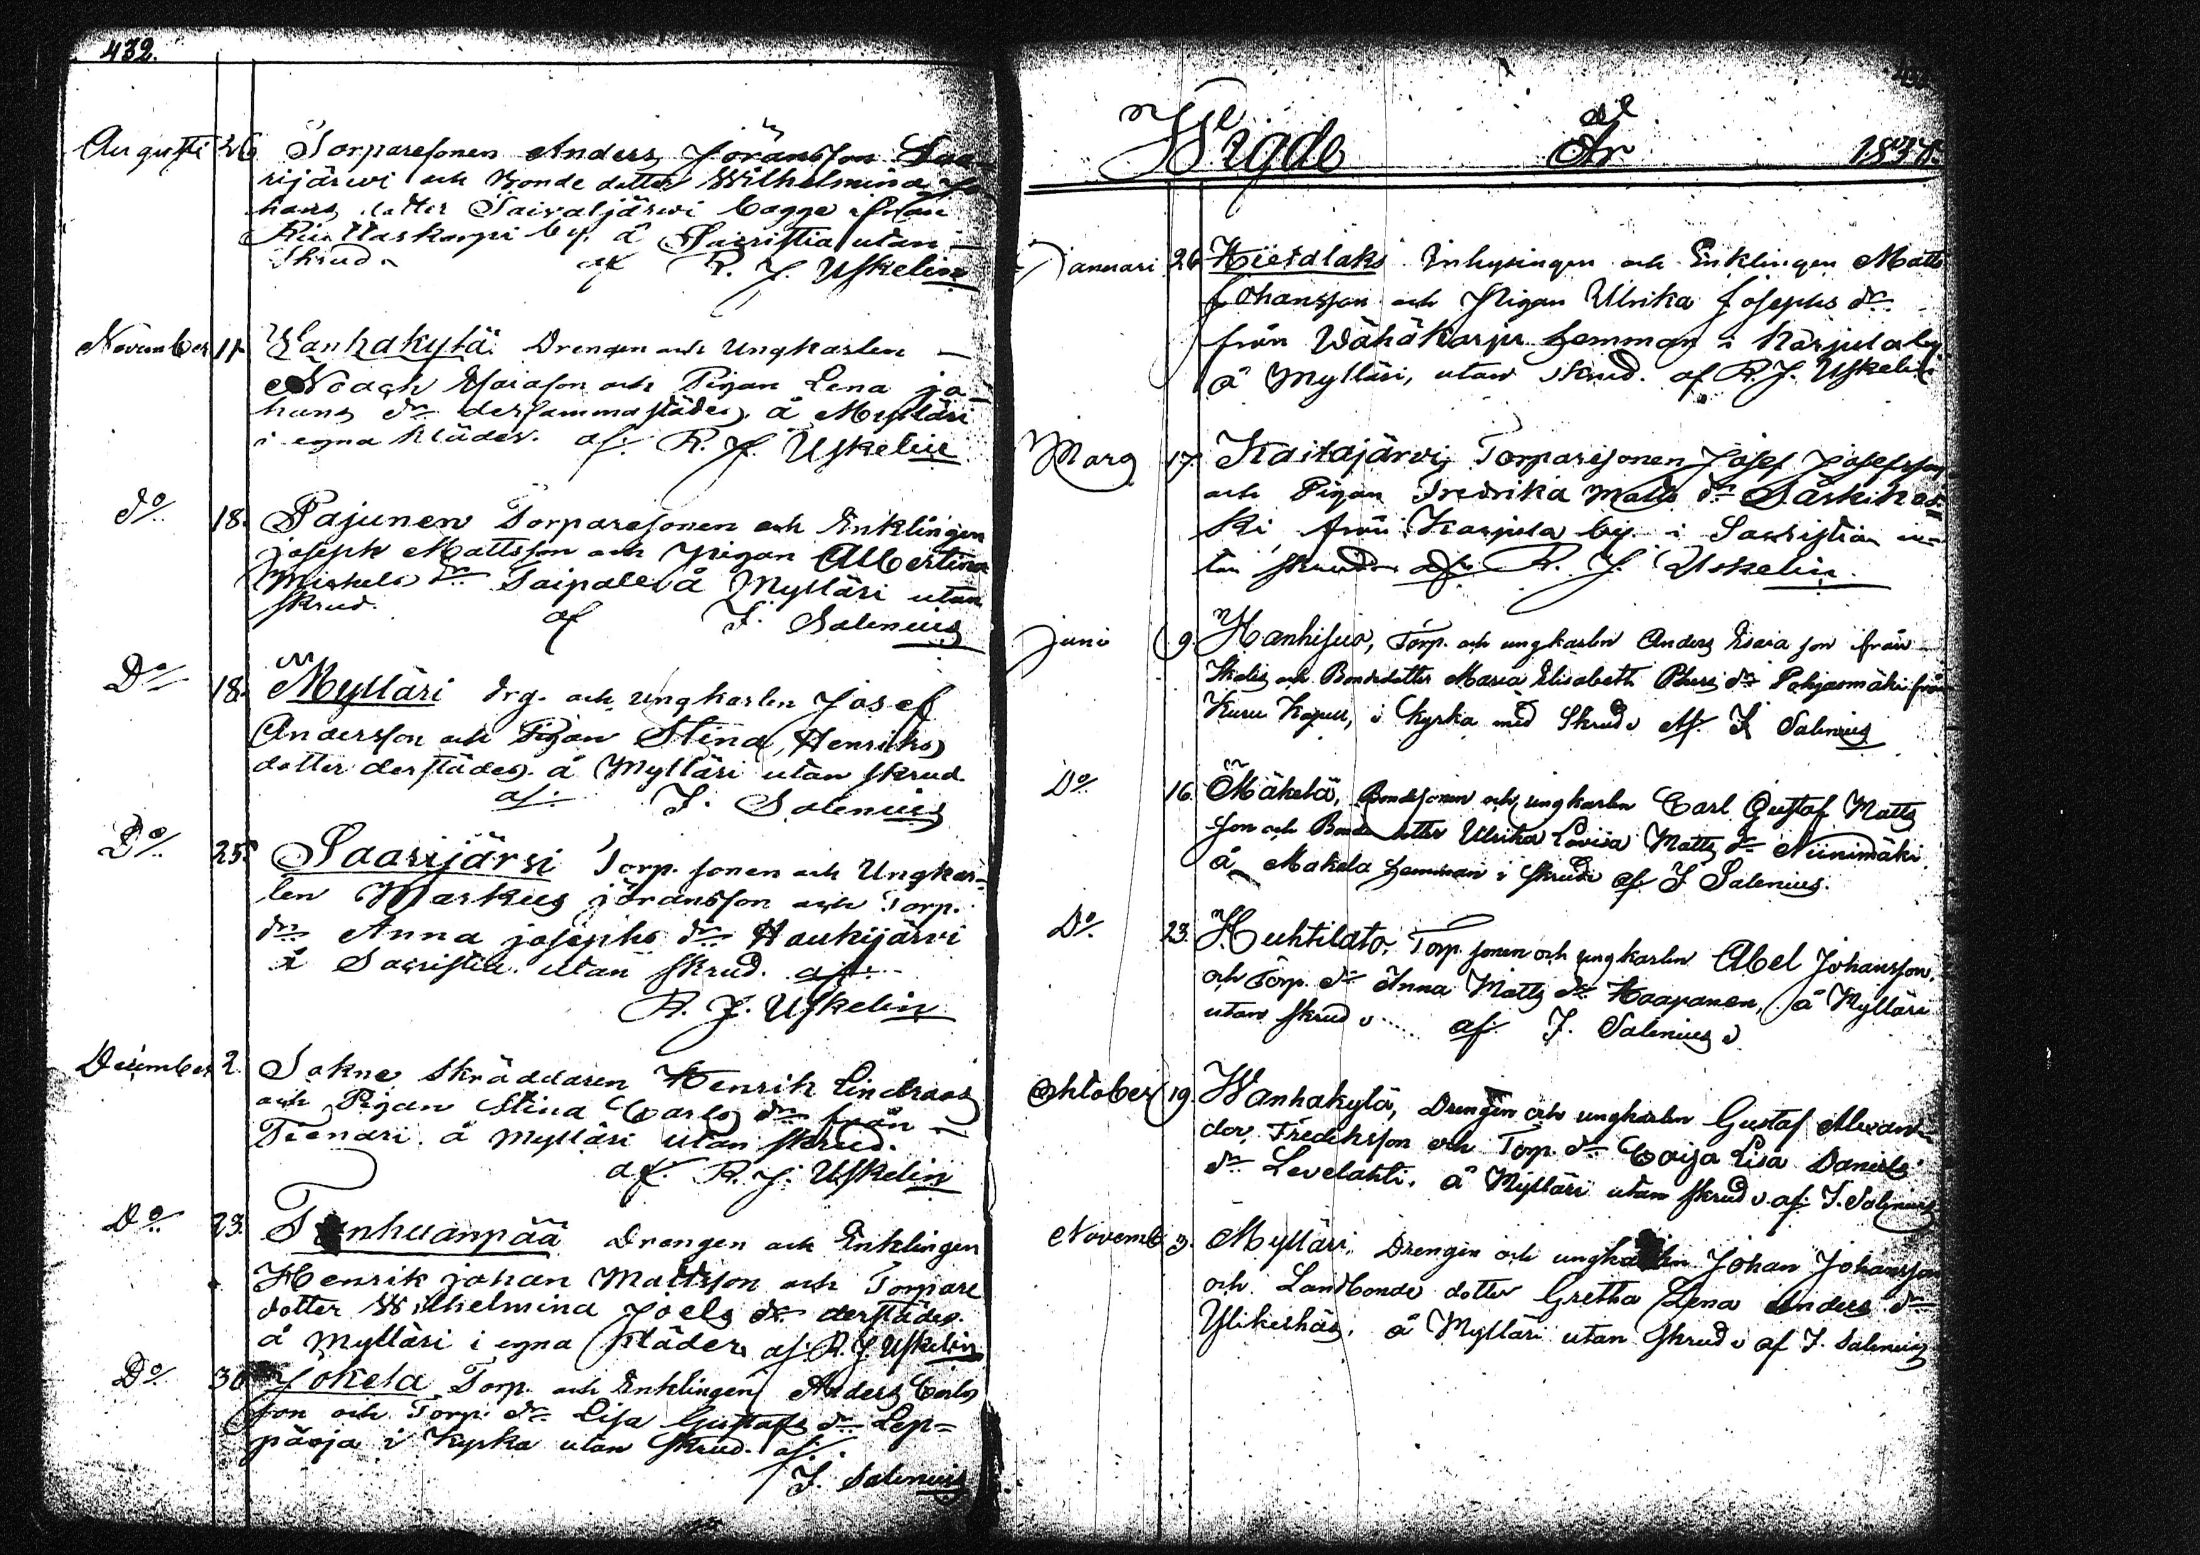 432.
Augusti 26 Torparesonen Anders Jöransson Saa-
rijärwi och Bonde dotter Wilhelmina Jo
hans dotter Taivaljärwi bägge ifrån
Riuttaskorpi by. å Sacristia utan
Skrud. af R. J. Uskelin
November 11 Wanhakylä. Drengen och Ungkarlen
Noach Esaiason och Pigan Lena jo-
hans dr dersammastädes, å Mylläri
i egna kläder. af. R. J. Uskelin
do 18. Pajunen Torparesonen och Enklingen
joseph Mattsson och Pigan Albertina
Michels dr Taipale å Mylläri utan
skrud. af F. Salenius
Do 18. Mylläri drg. och ungkarlen Josef
Andersson och Pigan Stina Henriks
dotter derstädes. å Mylläri utan skrud
af. F. Salenius
Do 25. Saarijärvi Torp. sonen och Ungkar-
len Markus jöransson och Torp.
dr Anna josephs dr Haukijärvi
i Sacristia utan skrud. af.
R. J. Uskelin
December 2. Sokne Skräddaren Henrik Lindroos
och Pigan Stina Carls dr från
Tienari. å Mylläri utan skrud.
af. R. J. Uskelin
Do 23. Tanhuanpää Drengen och Enklingen
Henrik johan Mattsson och Torpare
dotter Wilhelmina Joels dr derstädes.
å Mylläri i egna kläder. af. R. J. Uskelin
Do 30 Jokela Torp. och Enklingen Anders Carls
son och Torp. dr Lisa Gustafs dr Lep=
päoja i Kyrka utan skrud. af.
F. Salenius
Wigde År 1837.
Januari 26 Kierdlaks Inhysingen och Enklingen Matts
Johansson och Pigan Ulrika Josephs dr
från Wähäkarju hemman i Karjula by
å Mylläri, utan skrud. af R. J. Uskelin
Mars 17. Kaitajärvi, Torparesonen Josef Josefsson
och Pigan Fredrika Matts dr Särkikos-
ki från Karjula by. i Sacristian u-
tan skrud af. R. J. Uskelin.
juni 9. Hanhisuo, Torp. och ungkarlen Anders Esaia son från
Ikalis och Bondedotter Maria Elisabeth Phers dr Pohjasmäki från
Kuru Kapell, i Kyrka med Skrud af. F. Salenius
Do 16. Mäkelä, Bondesonen och ungkarlen Carl Gustaf Matts
son och Bonde dotter Ulrika Lovisa Matts dr Niinimäki
å Makela hemman i skrud af F. Salenius.
Do 23. Huhtilato, Torp. sonen och ungkarlen Abel Johansson,
och Torp. dr Anna Matts dr Haapanen, å Mylläri
utan skrud af. F. Salenius
Oktober 19. Wanhakylä, Drengen och ungkarlen Gustaf Alexan-
der Fredriksson och Torp. dr Caisa Lisa Daniels
dr Levelahti. å Mylläri utan skrud af. F. Salenius
Novemb 3. Mylläri. Drengen och ungkarlen Johan Johansson
och Landbonde dotter Gretha Lena Anders dr
Ylikeshäs. å Mylläri utan skrud af F. Salenius